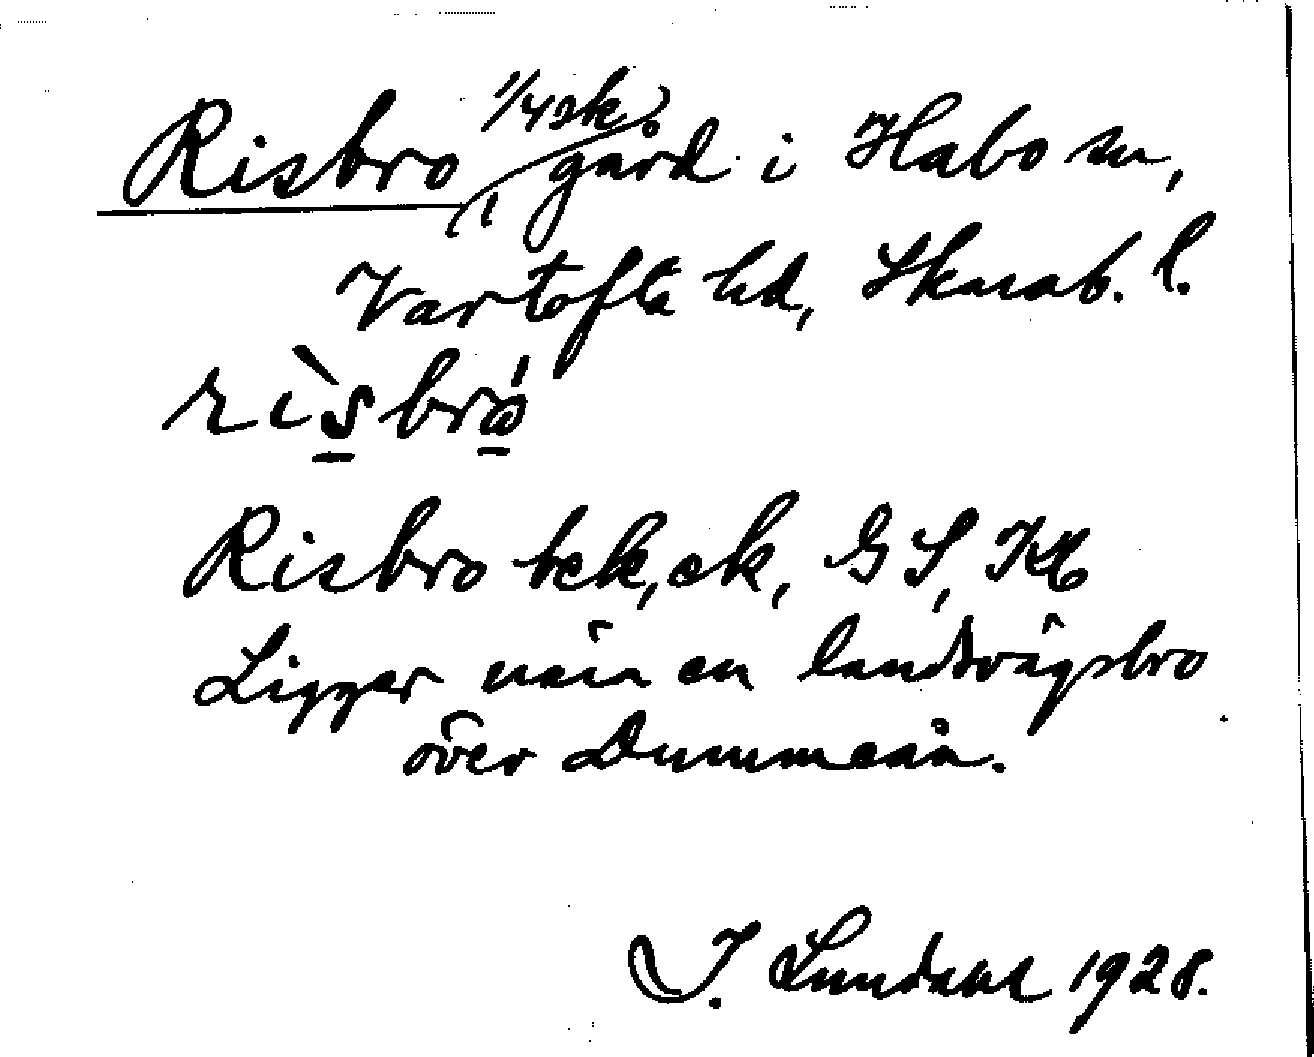 Risbro 1/4 sk. gård i Habo sn,
Vartofta hd, Skarab. l.
rìsbró
Risbro bek, ek, GS,
Ligger när en landsvägsbro
över Dummeån.
I. Lundahl 1928.